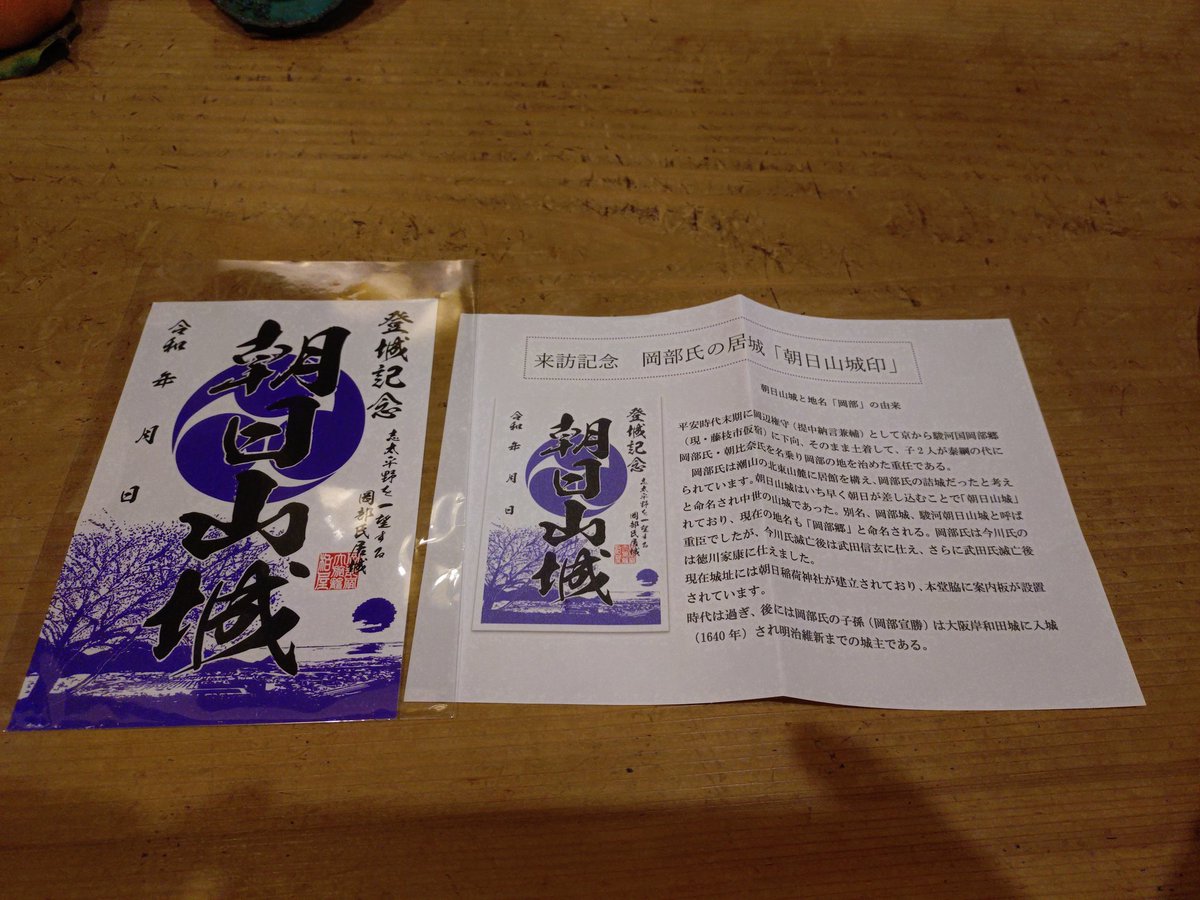 登城記念
志太平野を一望する
岡部氏居城
朝日山城
令和 年 月 日
来訪記念 岡部氏の居城「朝日山城印」
朝日山城と地名「岡部」の由来
平安時代末期に岡辺権守（提中納言兼輔）として京から駿河国岡部郷
（現・藤枝市仮宿）に下向、そのまま土着して、子2人が泰綱の代に
岡部氏・朝比奈氏を名乗り岡部の地を治めた重任である。
岡部氏は潮山の北東山麓に居館を構え、岡部氏の詰城だったと考え
られています。朝日山城はいち早く朝日が差し込むことで「朝日山城」
と命名され中世の山城であった。別名、岡部城、駿河朝日山城と呼ば
れており、現在の地名も「岡部郷」と命名される。岡部氏は今川氏の
重臣でしたが、今川氏滅亡後は武田信玄に仕え、さらに武田氏滅亡後
は徳川家康に仕えました。
現在城址には朝日稲荷神社が建立されており、本堂脇に案内板が設置
されています。
時代は過ぎ、後には岡部氏の子孫（岡部宣勝）は大阪岸和田城に入城
（1640年）され明治維新までの城主である。
登城記念
志太平野を一望する
岡部氏居城
朝日山城
令和 年 月 日